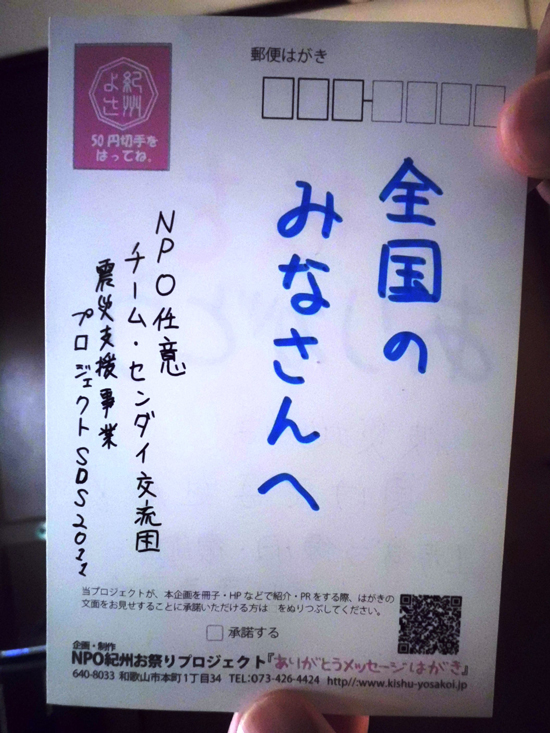 郵便はがき
紀州
よさ
50円切手を
はってね。
全国の
みなさんへ
NPO任意
チーム・センダイ交流団
震災支援事業
プロジェクトSDS2011
当プロジェクトが、本企画を冊子・HPなどで紹介・PRをする際、はがきの
文面をお見せすることに承諾いただける方は□をぬりつぶしてください。
□承諾する
企画・制作
NPO紀州お祭りプロジェクト『ありがとうメッセージはがき』
640-8033 和歌山市本町1丁目34 TEL:073-426-4424 http//:www.kishu-yosakoi.jp